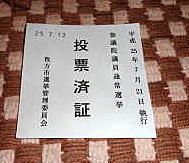 平成25年7月21日執行
参議院議員通常選挙
投票済証
枚方市選挙管理委員会